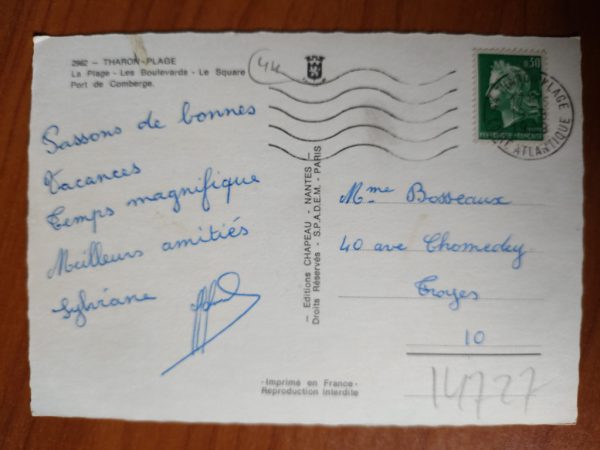 2962 - THARON-PLAGE
La Plage - Les Boulevards - Le Square
Port de Comberge.
44
0,30
REPUBLIQUE FRANÇAISE
PLAGE
ATLANTIQUE
Passons de bonnes
Vacances
Temps magnifique
Meilleurs amitiés
Sylviane
— Editions CHAPEAU - NANTES —
Droits Réservés - S.P.A.D.E.M. - PARIS
Mme Bosseaux
40 ave Chomedey
Troyes
10
-Imprimé en France-
Reproduction interdite
14727